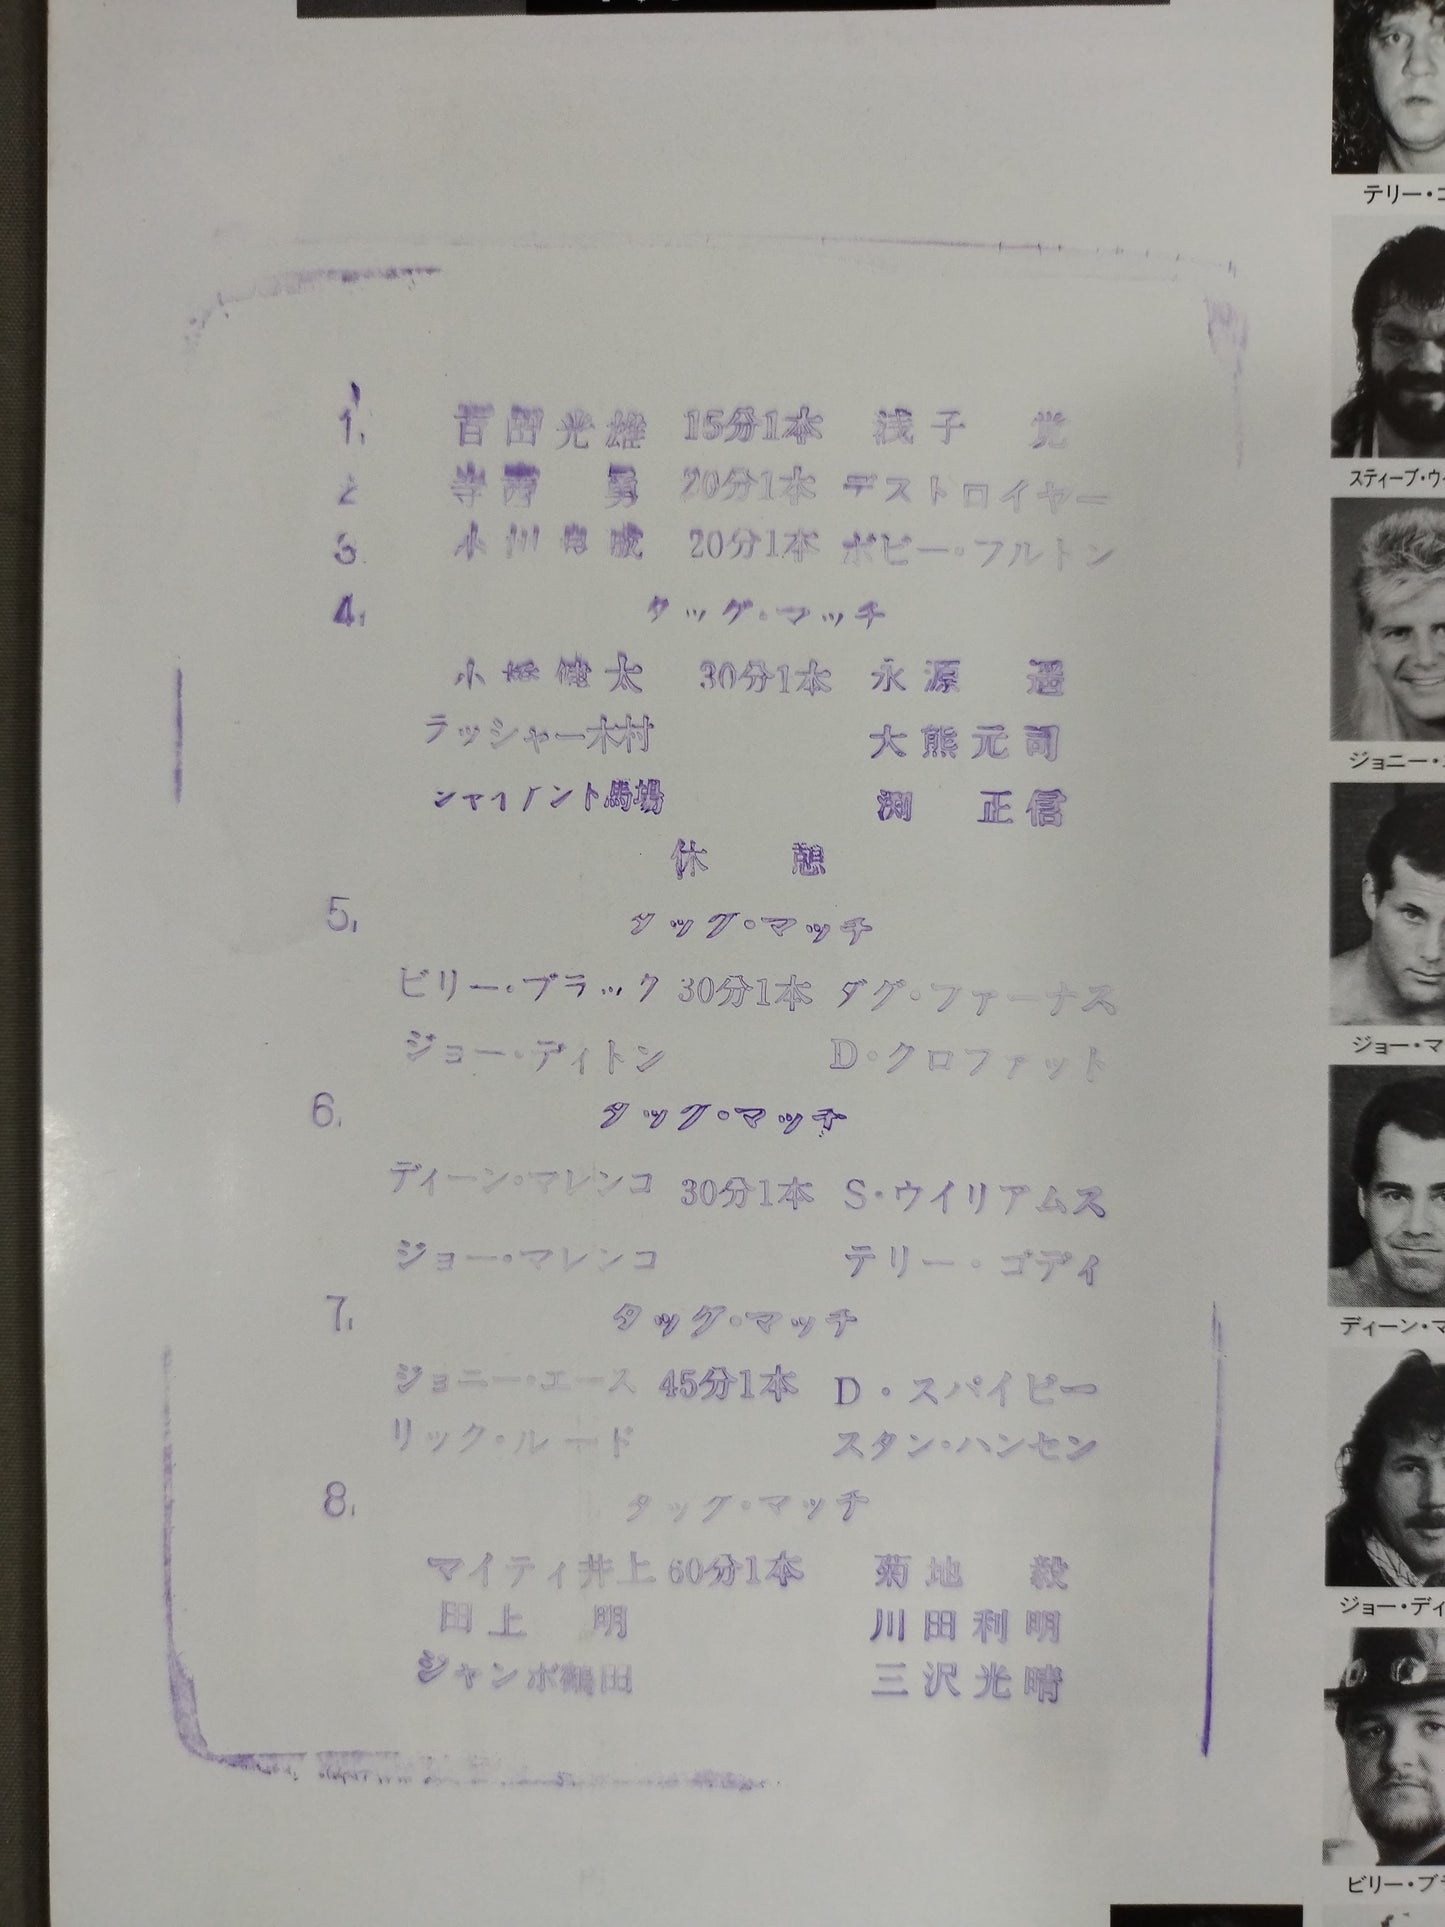 1. 百田光雄 15分1本 浅子 覚
2. 寺西 勇 20分1本 デストロイヤー
3. 小川良成 20分1本 ボビー・フルトン
4. タッグ・マッチ
小橋健太 30分1本 永源 遥
ラッシャー木村 大熊元司
ジャイアント馬場 渕 正信
休 憩
5. タッグ・マッチ
ビリー・ブラック 30分1本 ダグ・ファーナス
ジョー・ディトン D・クロファット
6. タッグ・マッチ
ディーン・マレンコ 30分1本 S・ウイリアムス
ジョー・マレンコ テリー・ゴディ
7. タッグ・マッチ
ジョニー・エース 45分1本 D・スパイビー
リック・ルード スタン・ハンセン
8. タッグ・マッチ
マイティ井上 60分1本 菊地 毅
田上 明 川田利明
ジャンボ鶴田 三沢光晴
テリー・
スティーブ・ウ
ジョニー・
ジョー・マ
ディーン・マ
ジョー・ディ
ビリー・ブ